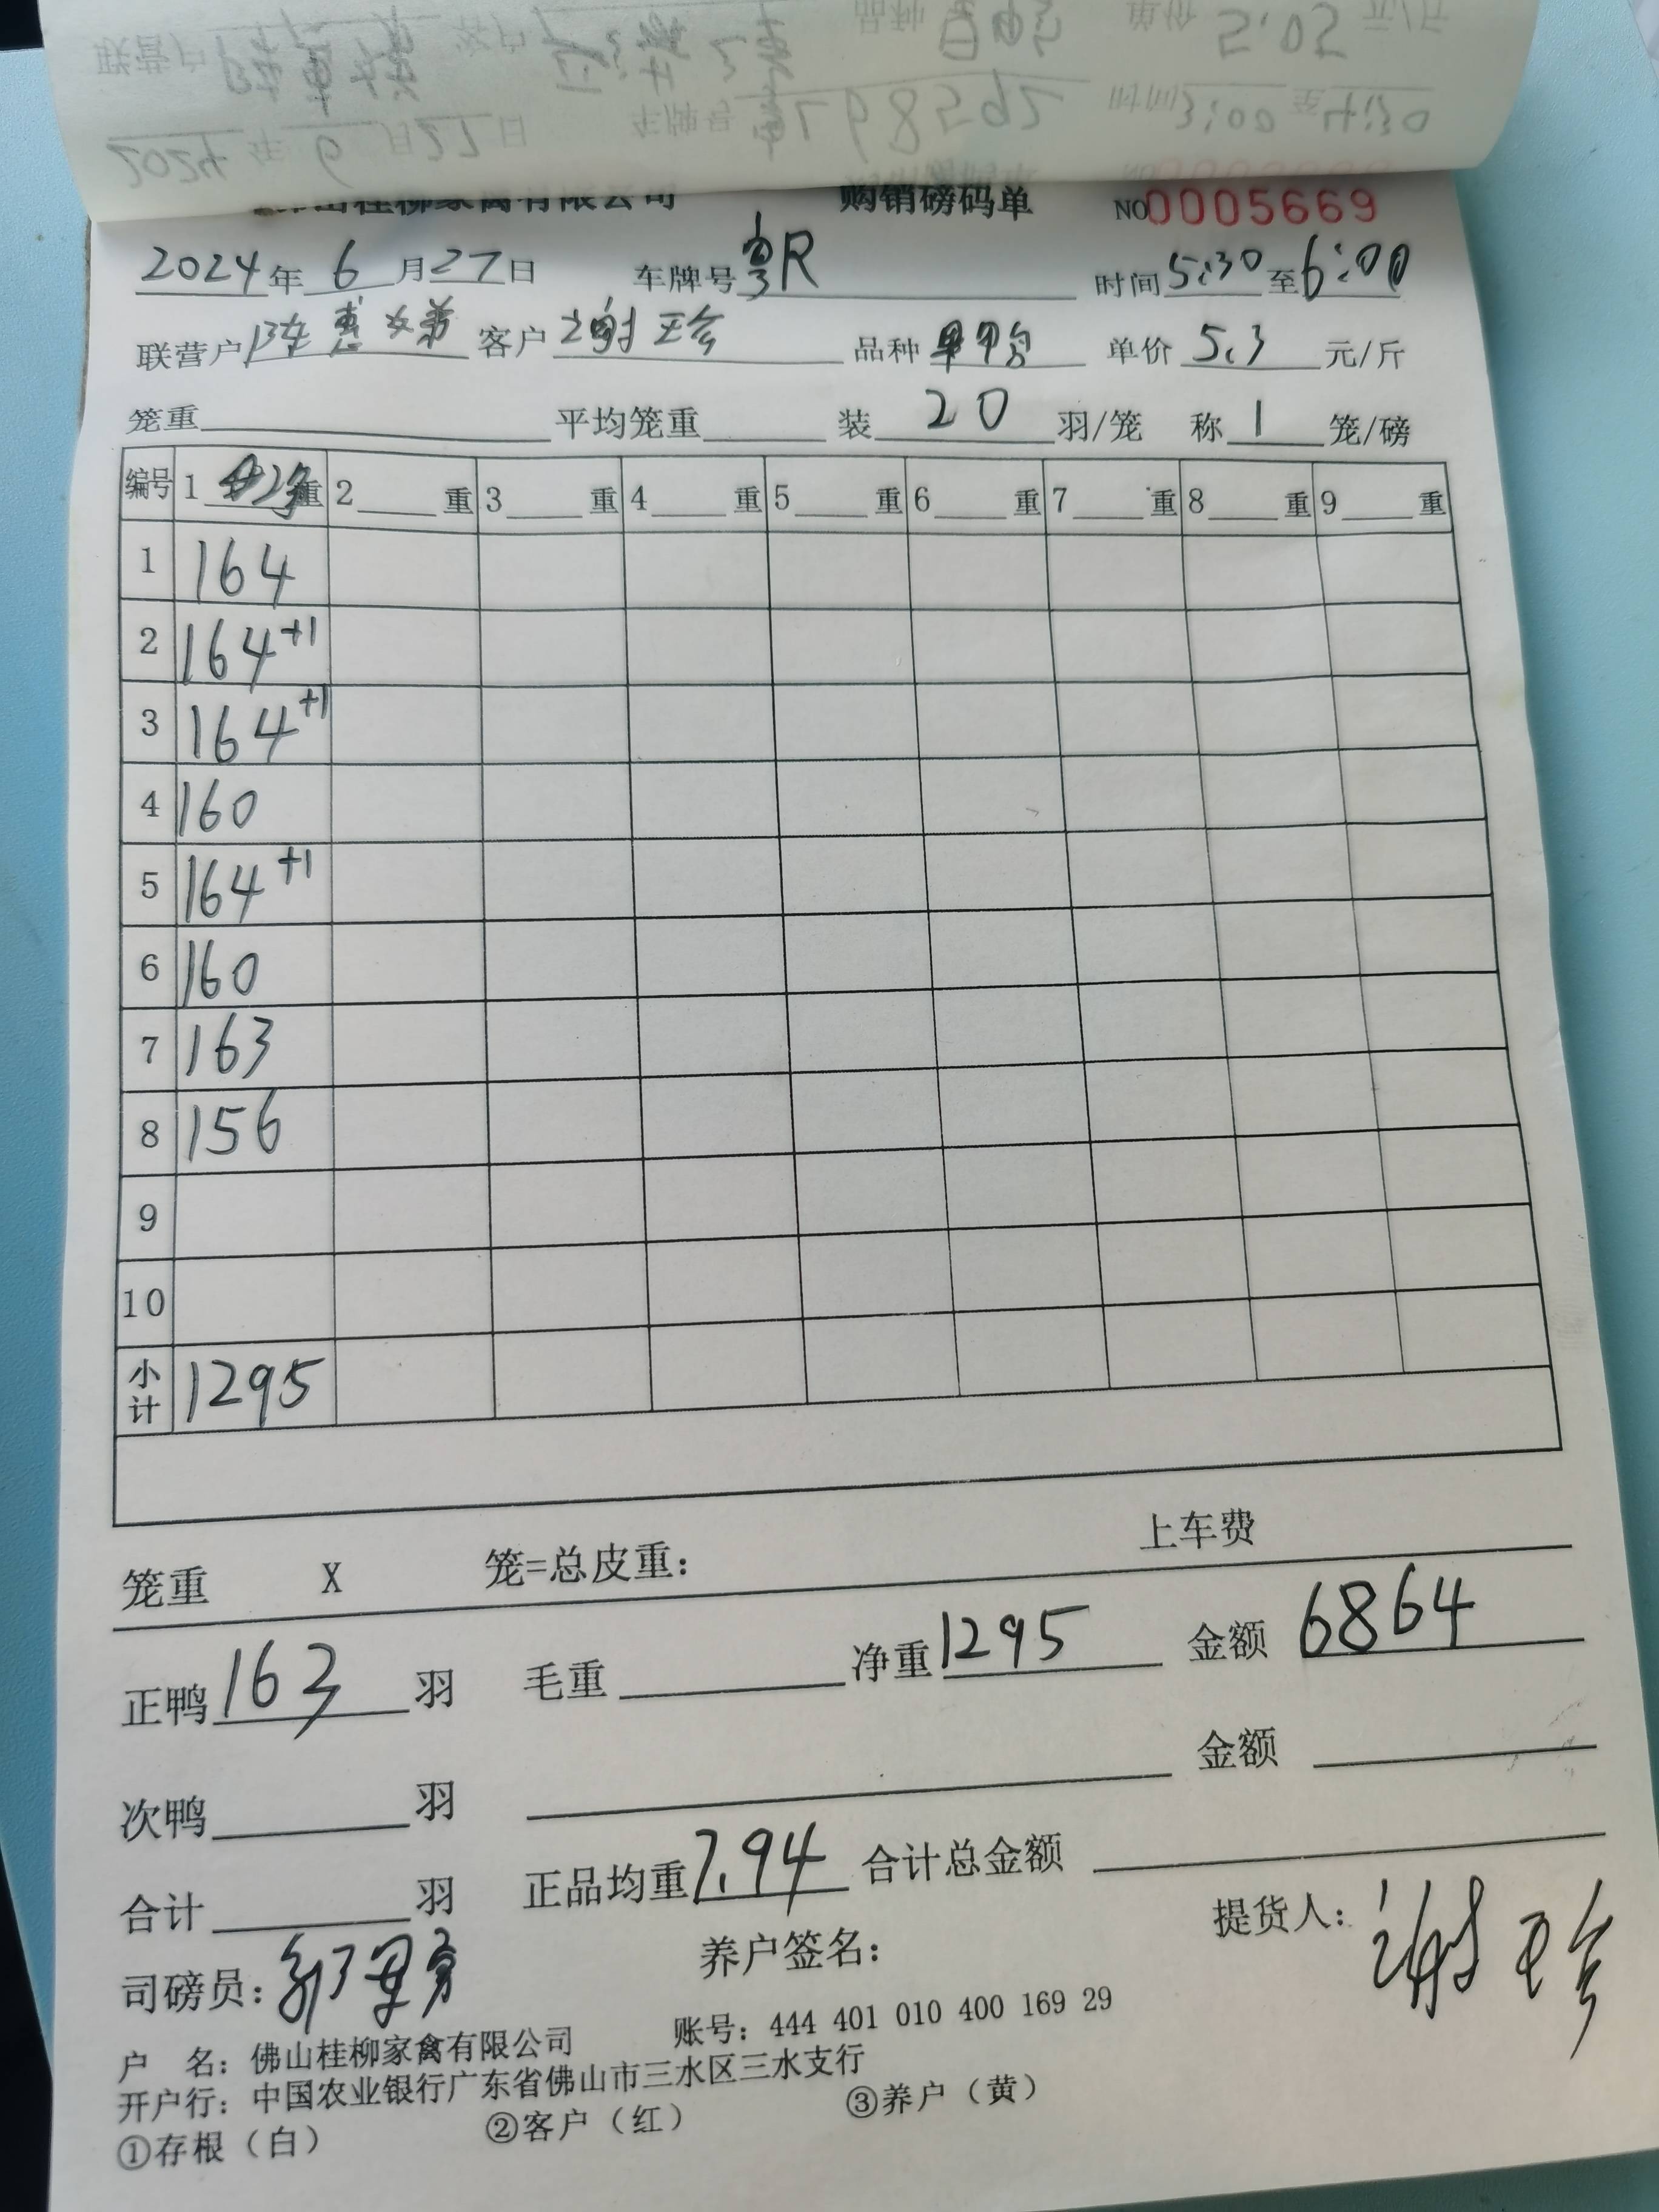 购销磅码单 NO0005669
2024年6月27日 车牌号粤R 时间5:30至6:00
联营户陈惠娣 客户谢珍 品种 单价5.3元/斤
笼重 平均笼重 装20羽/笼 称1笼/磅
编号 1 重 2 重 3 重 4 重 5 重 6 重 7 重 8 重 9 重
1 164
2 164+1
3 164+1
4 160
5 164+1
6 160
7 163
8 156
9
10
小计 1295
笼重 X 笼=总皮重: 上车费
正鸭163羽 毛重 净重1295 金额6864
次鸭 羽 金额
合计 羽 正品均重7.94 合计总金额
司磅员: 养户签名: 提货人:谢珍
户 名: 佛山桂柳家禽有限公司 账号: 444 401 010 400 169 29
开户行: 中国农业银行广东省佛山市三水区三水支行
①存根（白） ②客户（红） ③养户（黄）